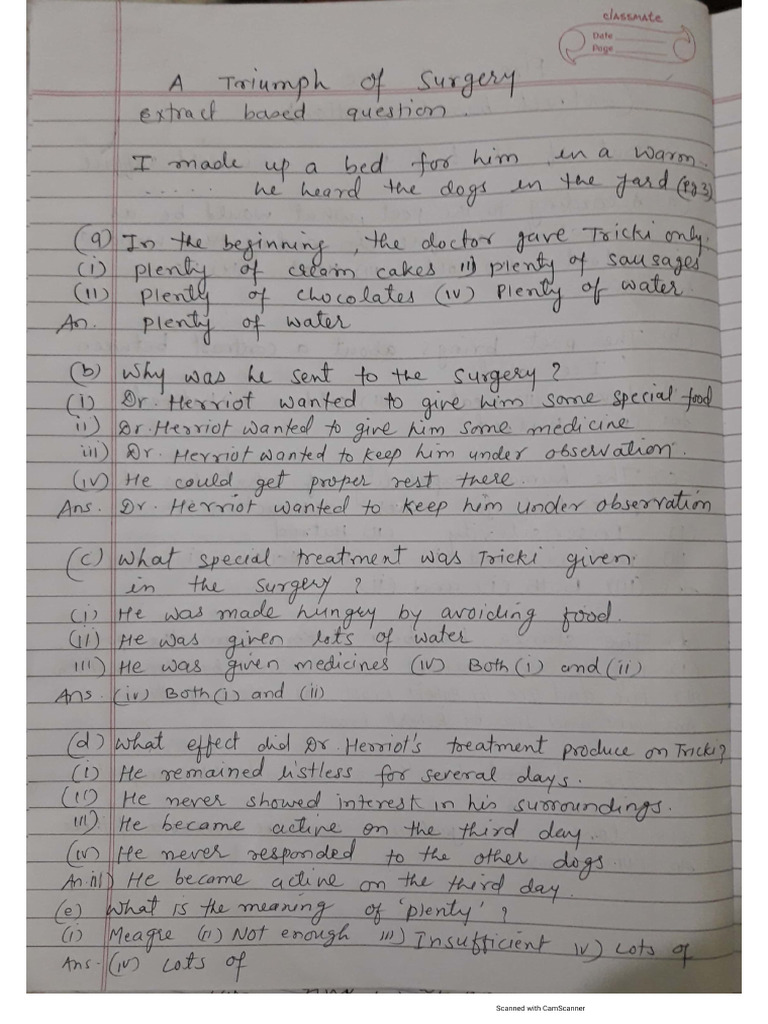 classmate
Date
Page
A Triumph of Surgery
extract based question.
I made up a bed for him in a warm.
..... he heard the dogs in the yard (Pg 3)
(a) In the beginning, the doctor gave Tricki only.
(i) plenty of cream cakes ii) plenty of sausages
(iii) plenty of chocolates (iv) Plenty of water
An. plenty of water
(b) Why was he sent to the surgery?
(i) Dr. Herriot wanted to give him some special food
ii) Dr. Herriot wanted to give him some medicine
iii) Dr. Herriot wanted to keep him under observation.
(iv) He could get proper rest there.
Ans. Dr. Herriot wanted to keep him under observation
(c) What special treatment was Tricki given
in the surgery?
(i) He was made hungry by avoiding food.
(ii) He was given lots of water
iii) He was given medicines (iv) Both (i) and (ii)
Ans. (iv) Both (i) and (ii)
(d) What effect did Dr. Herriot's treatment produce on Tricki?
(i) He remained listless for several days.
(ii) He never showed interest in his surroundings.
iii) He became active on the third day.
(iv) He never responded to the other dogs.
An. iii) He became active on the third day.
(e) What is the meaning of 'plenty'?
(i) Meagre (ii) Not enough iii) Insufficient iv) Lots of
Ans. (iv) Lots of
Scanned with CamScanner